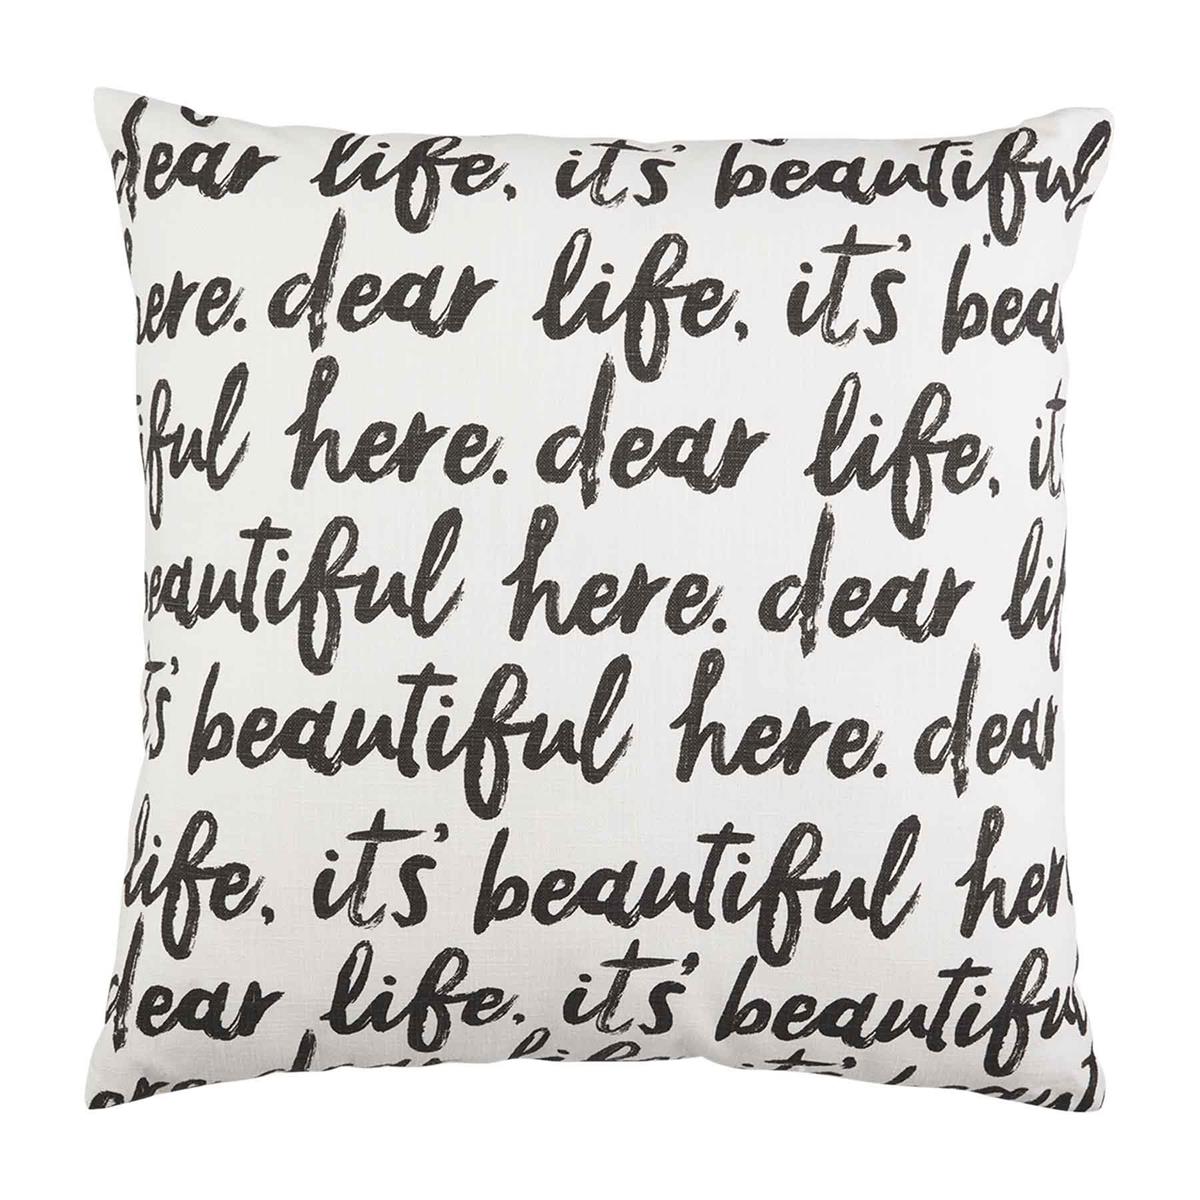 dear life, it's beautiful
here. dear life, it's bea
iful here. dear life, it'
beautiful here. dear lif
it's beautiful here. dear
life, it's beautiful her
dear life, it's beautiful
ere. dear life, it's beaut